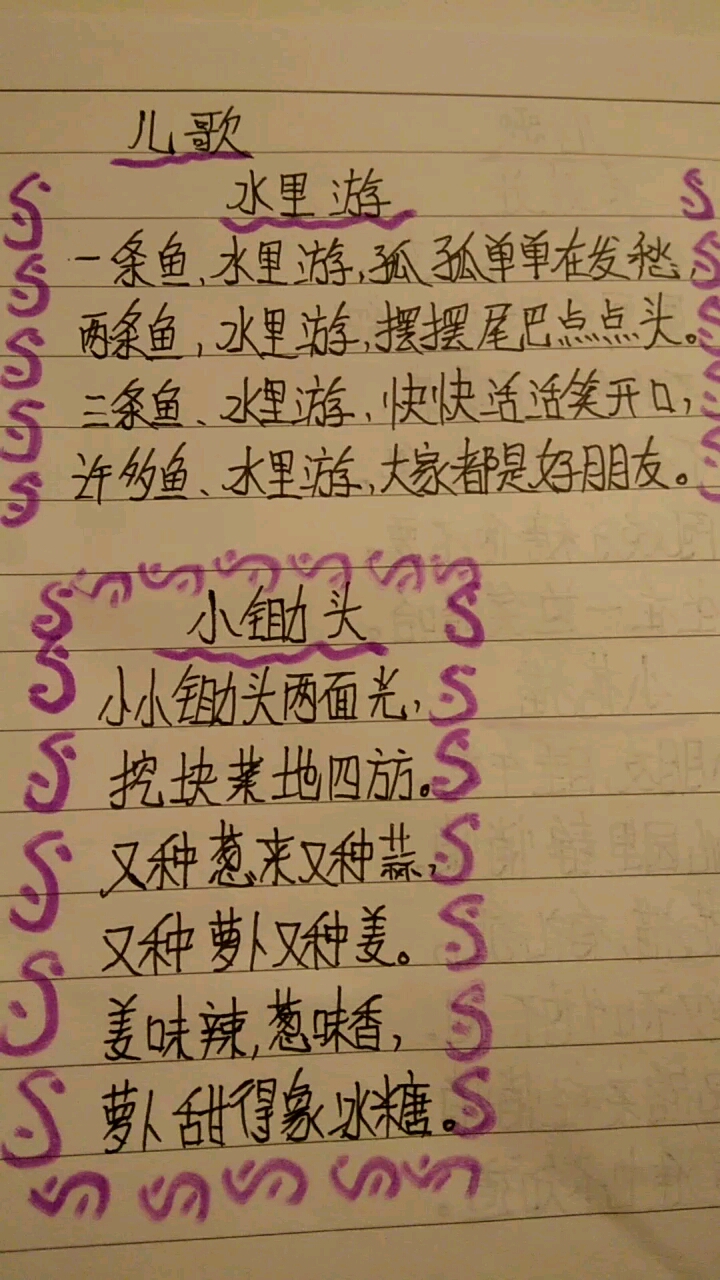 儿歌
水里游
一条鱼、水里游,孤孤单单在发愁,
两条鱼,水里游,摆摆尾巴点点头。
三条鱼、水里游,快快活活笑开口,
许多鱼、水里游,大家都是好朋友。
小锄头
小小锄头两面光,
挖块菜地四方方。
又种葱来又种蒜,
又种萝卜又种姜。
姜味辣,葱味香,
萝卜甜得象冰糖。